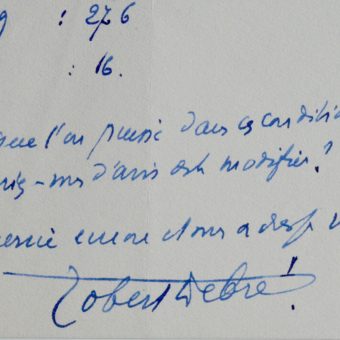 : 276
: 16.
que l'on puisse dans ces conditio
d'avis et modifier?
encore et vous adresse
Robert Debré